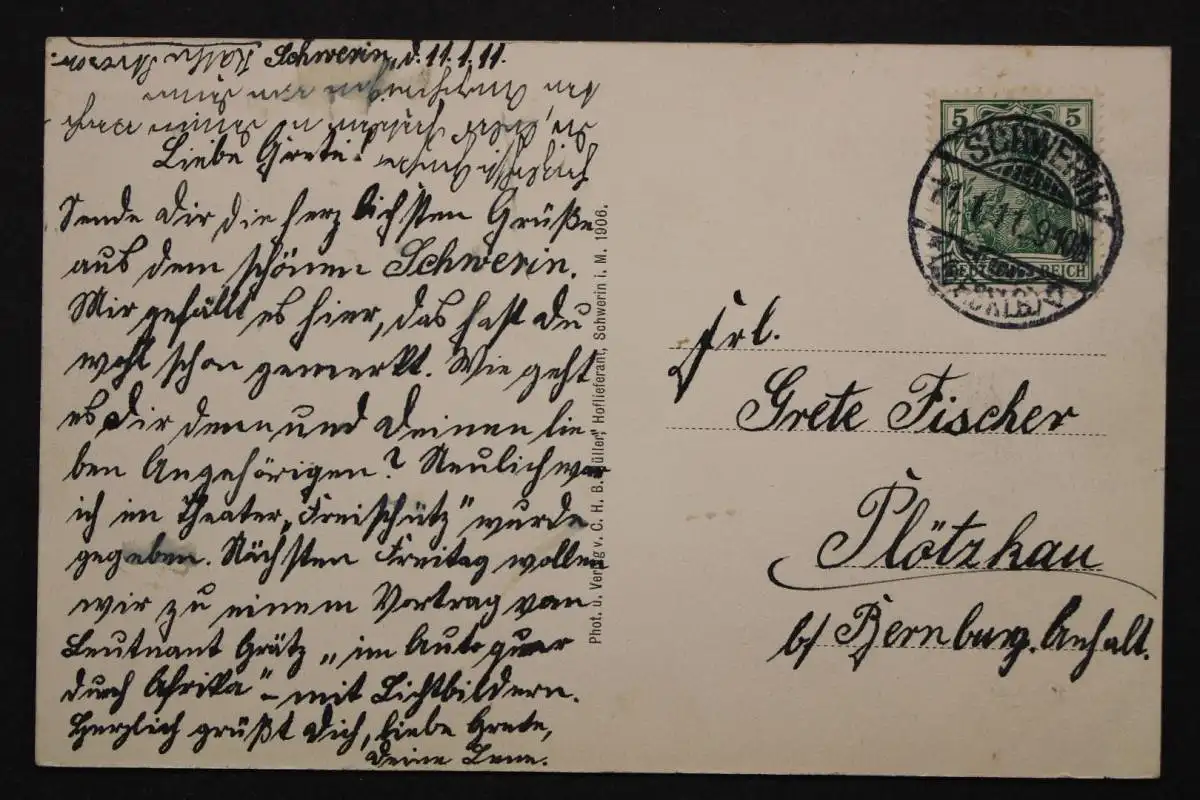 Schwerin, d. 11.1.11.
Liebe Grete!
Sende Dir die herzlichsten Grüße
aus dem schönen Schwerin.
Mir gefällt es hier, das hast du
wohl schon gemerkt. Wie geht
es Dir denn und Deinen lie-
ben Angehörigen? Neulich war
ich im Theater, „Freischütz“ wurde
gegeben. Nächsten Freitag wollen
wir zu einem Vortrag von
Leutnant Grätz „im Auto quer
durch Afrika“ - mit Lichtbildern.
Herzlich grüßt Dich, liebe Grete,
Deine Lene.
Käthe
Phot. u. Verlag v. C. H. B. Müller, Hoflieferant, Schwerin i. M. 1906.
5 5
DEUTSCHES REICH
SCHWERIN
11.1.11.9-10
(MECKLB)
Frl.
Grete Fischer
Plötzkau
b/ Bernburg. Anhalt.